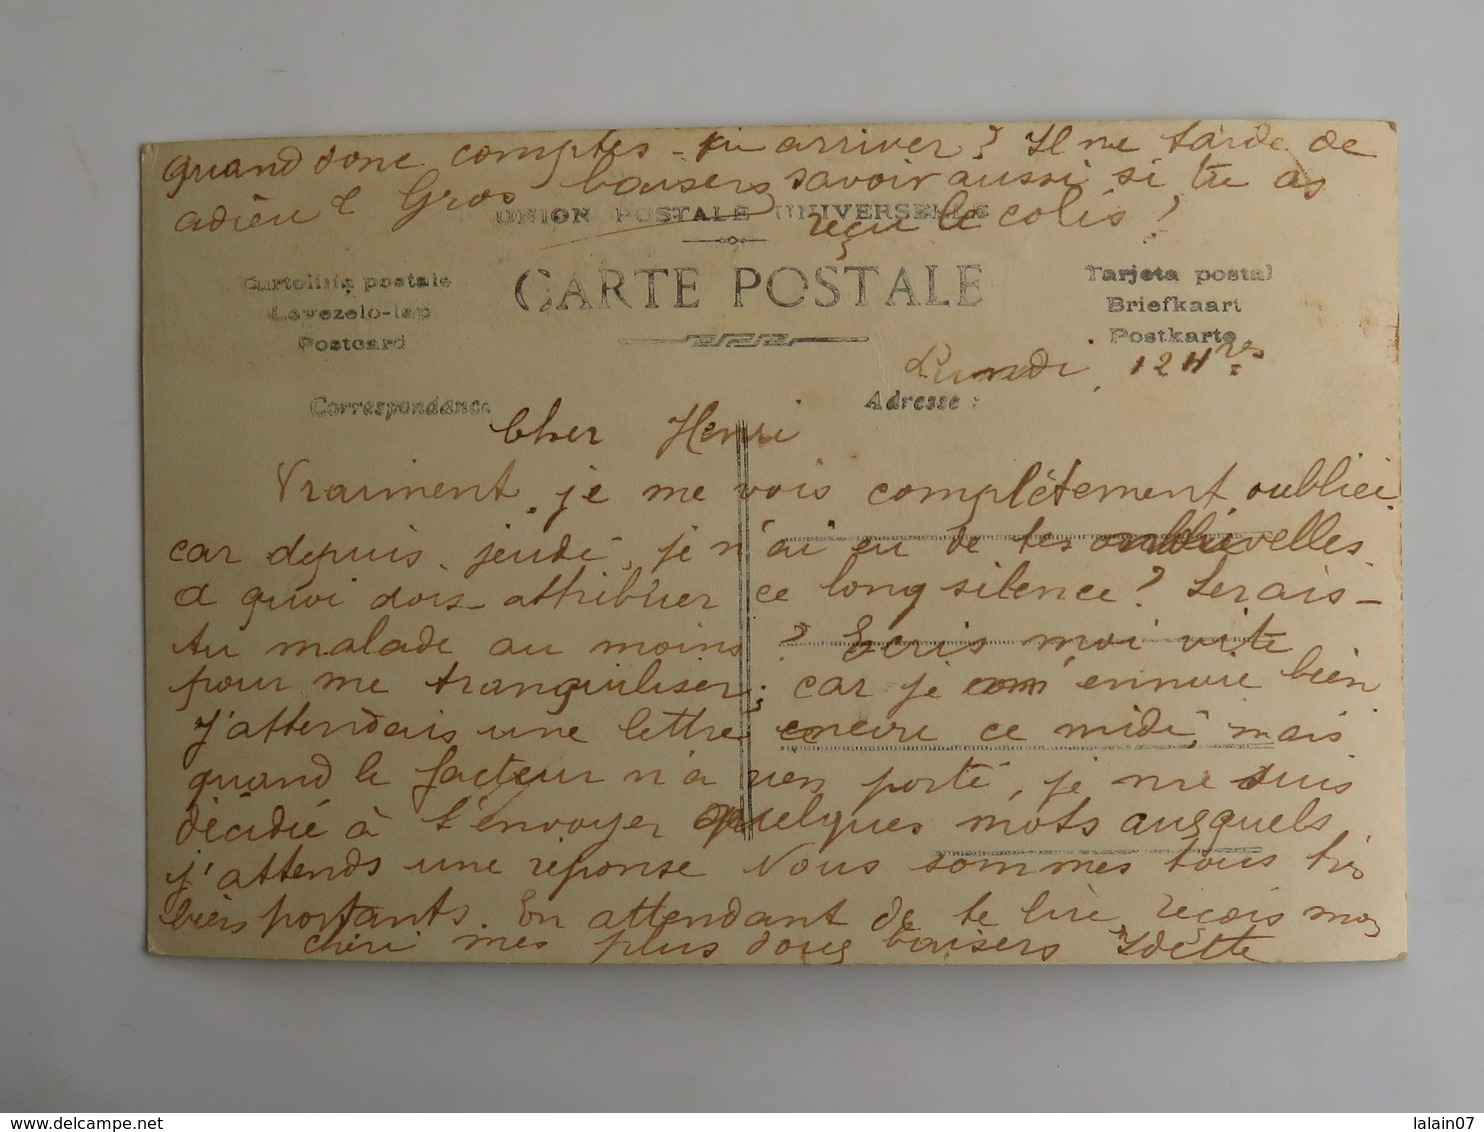 quand donc comptes-tu arriver ? Il me tarde de
adieu & Gros baisers savoir aussi si tu as
reçu le colis !
UNION POSTALE UNIVERSELLE
CARTE POSTALE
Cartolina postale
Levezelo-lap
Postcard
Tarjeta postal
Briefkaart
Postkarte
Lundi, 12 Hres
Correspondance
Adresse :
Cher Henri
Vraiment je me vois complètement oubliée
car depuis jeudi, je n'ai eu de tes nouvelles
a quoi dois-attribuer ce long silence ? Serais-
tu malade au moins ? Ecris moi vite
pour me tranquiliser, car je m'ennuie bien
J'attendais une lettre encore ce midi, mais
quand le facteur n'a rien porté, je me suis
décidée à t'envoyer quelques mots ausquels
j'attends une réponse Nous sommes tous très
biens portants. En attendant de te lire, reçois mon
chéri mes plus doux baisers Odette
delcampe.net
lalain07